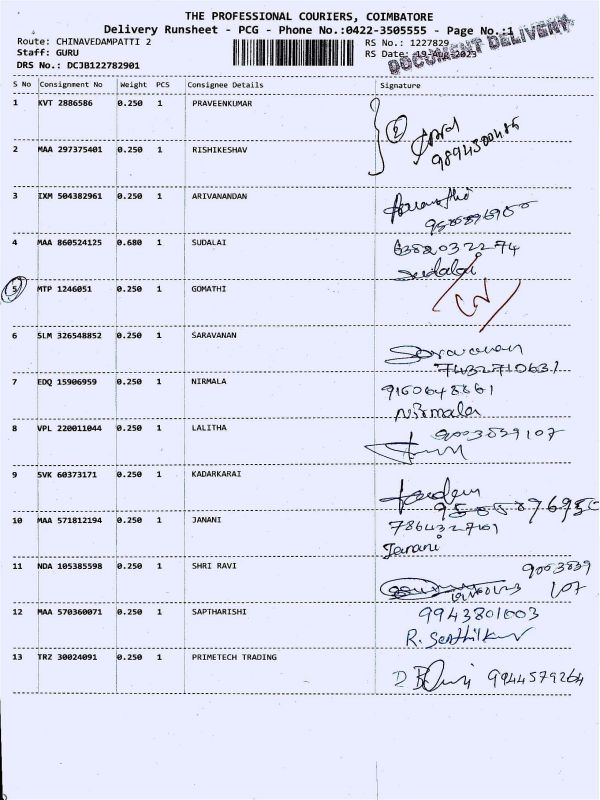 THE PROFESSIONAL COURIERS, COIMBATORE
Delivery Runsheet - PCG - Phone No.:0422-3505555 - Page No.:1
Route: CHINAVEDAMPATTI 2 RS No.: 1227829
Staff: GURU RS Date: 19-Aug-2023
DOCUMENT DELIVERY
DRS No.: DCJB122782901
S No Consignment No Weight PCS Consignee Details Signature
1 KVT 2886586 0.250 1 PRAVEENKUMAR
2
2 MAA 297375401 0.250 1 RISHIKESHAV
3 IXM 504382961 0.250 1 ARIVANANDAN
4 MAA 860524125 0.680 1 SUDALAI 6382032274
Sudalai
5 MTP 1246051 0.250 1 GOMATHI
6 SLM 326548852 0.250 1 SARAVANAN Saravanan
7432710631
7 EDQ 15906959 0.250 1 NIRMALA
Nirmala
8 VPL 220011044 0.250 1 LALITHA 9003839107
9 SVK 60373171 0.250 1 KADARKARAI
10 MAA 571812194 0.250 1 JANANI 7864327101
Janani
11 NDA 105385598 0.250 1 SHRI RAVI 9003839
107
12 MAA 570360071 0.250 1 SAPTHARISHI 9943801003
R. Senthilkur
13 TRZ 30024091 0.250 1 PRIMETECH TRADING 9944579264